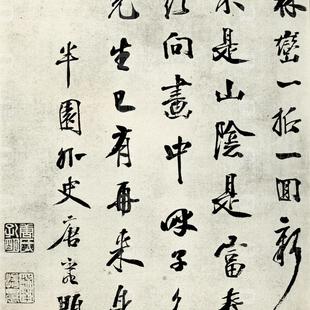 林巒一一回新
不是山陰是富春
向畫中呼子久
先生已有再來身
半園外史唐題
唐氏孔明